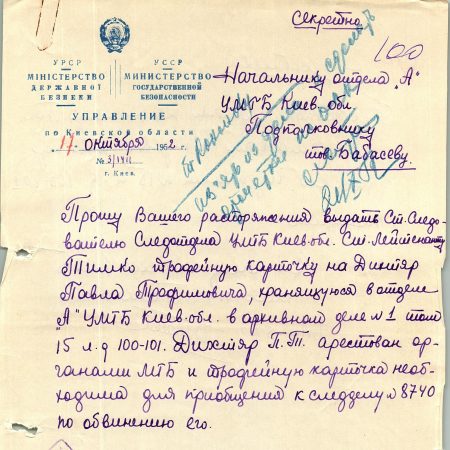 Секретно
100
УРСР
МІНІСТЕРСТВО
ДЕРЖАВНОЇ
БЕЗПЕКИ
УССР
МИНИСТЕРСТВО
ГОСУДАРСТВЕННОЙ
БЕЗОПАСНОСТИ
УПРАВЛЕНИЕ
по Киевской области
17 октября 1952 г.
№ 3/
г. Киев.
Начальнику отдела „А"
УМГБ Киев. обл.
Подполковнику
тов. Бабасеву.
Прошу Вашего распоряжения выдать Ст. Следо-
вателю Следотдела УМГБ Киев. обл. Ст. Лейтенанту
Тишко трофейную карточку на Дихтяр
Павла Трофимовича, хранящуюся в отделе
„А" УМГБ Киев. обл. в архивном деле №1 том
15 л.д 100-101. Дихтяр П.Т. арестован ор-
ганами МГБ и трофейную карточка необ-
ходима для приобщения к следделу №8740
по обвинению его.